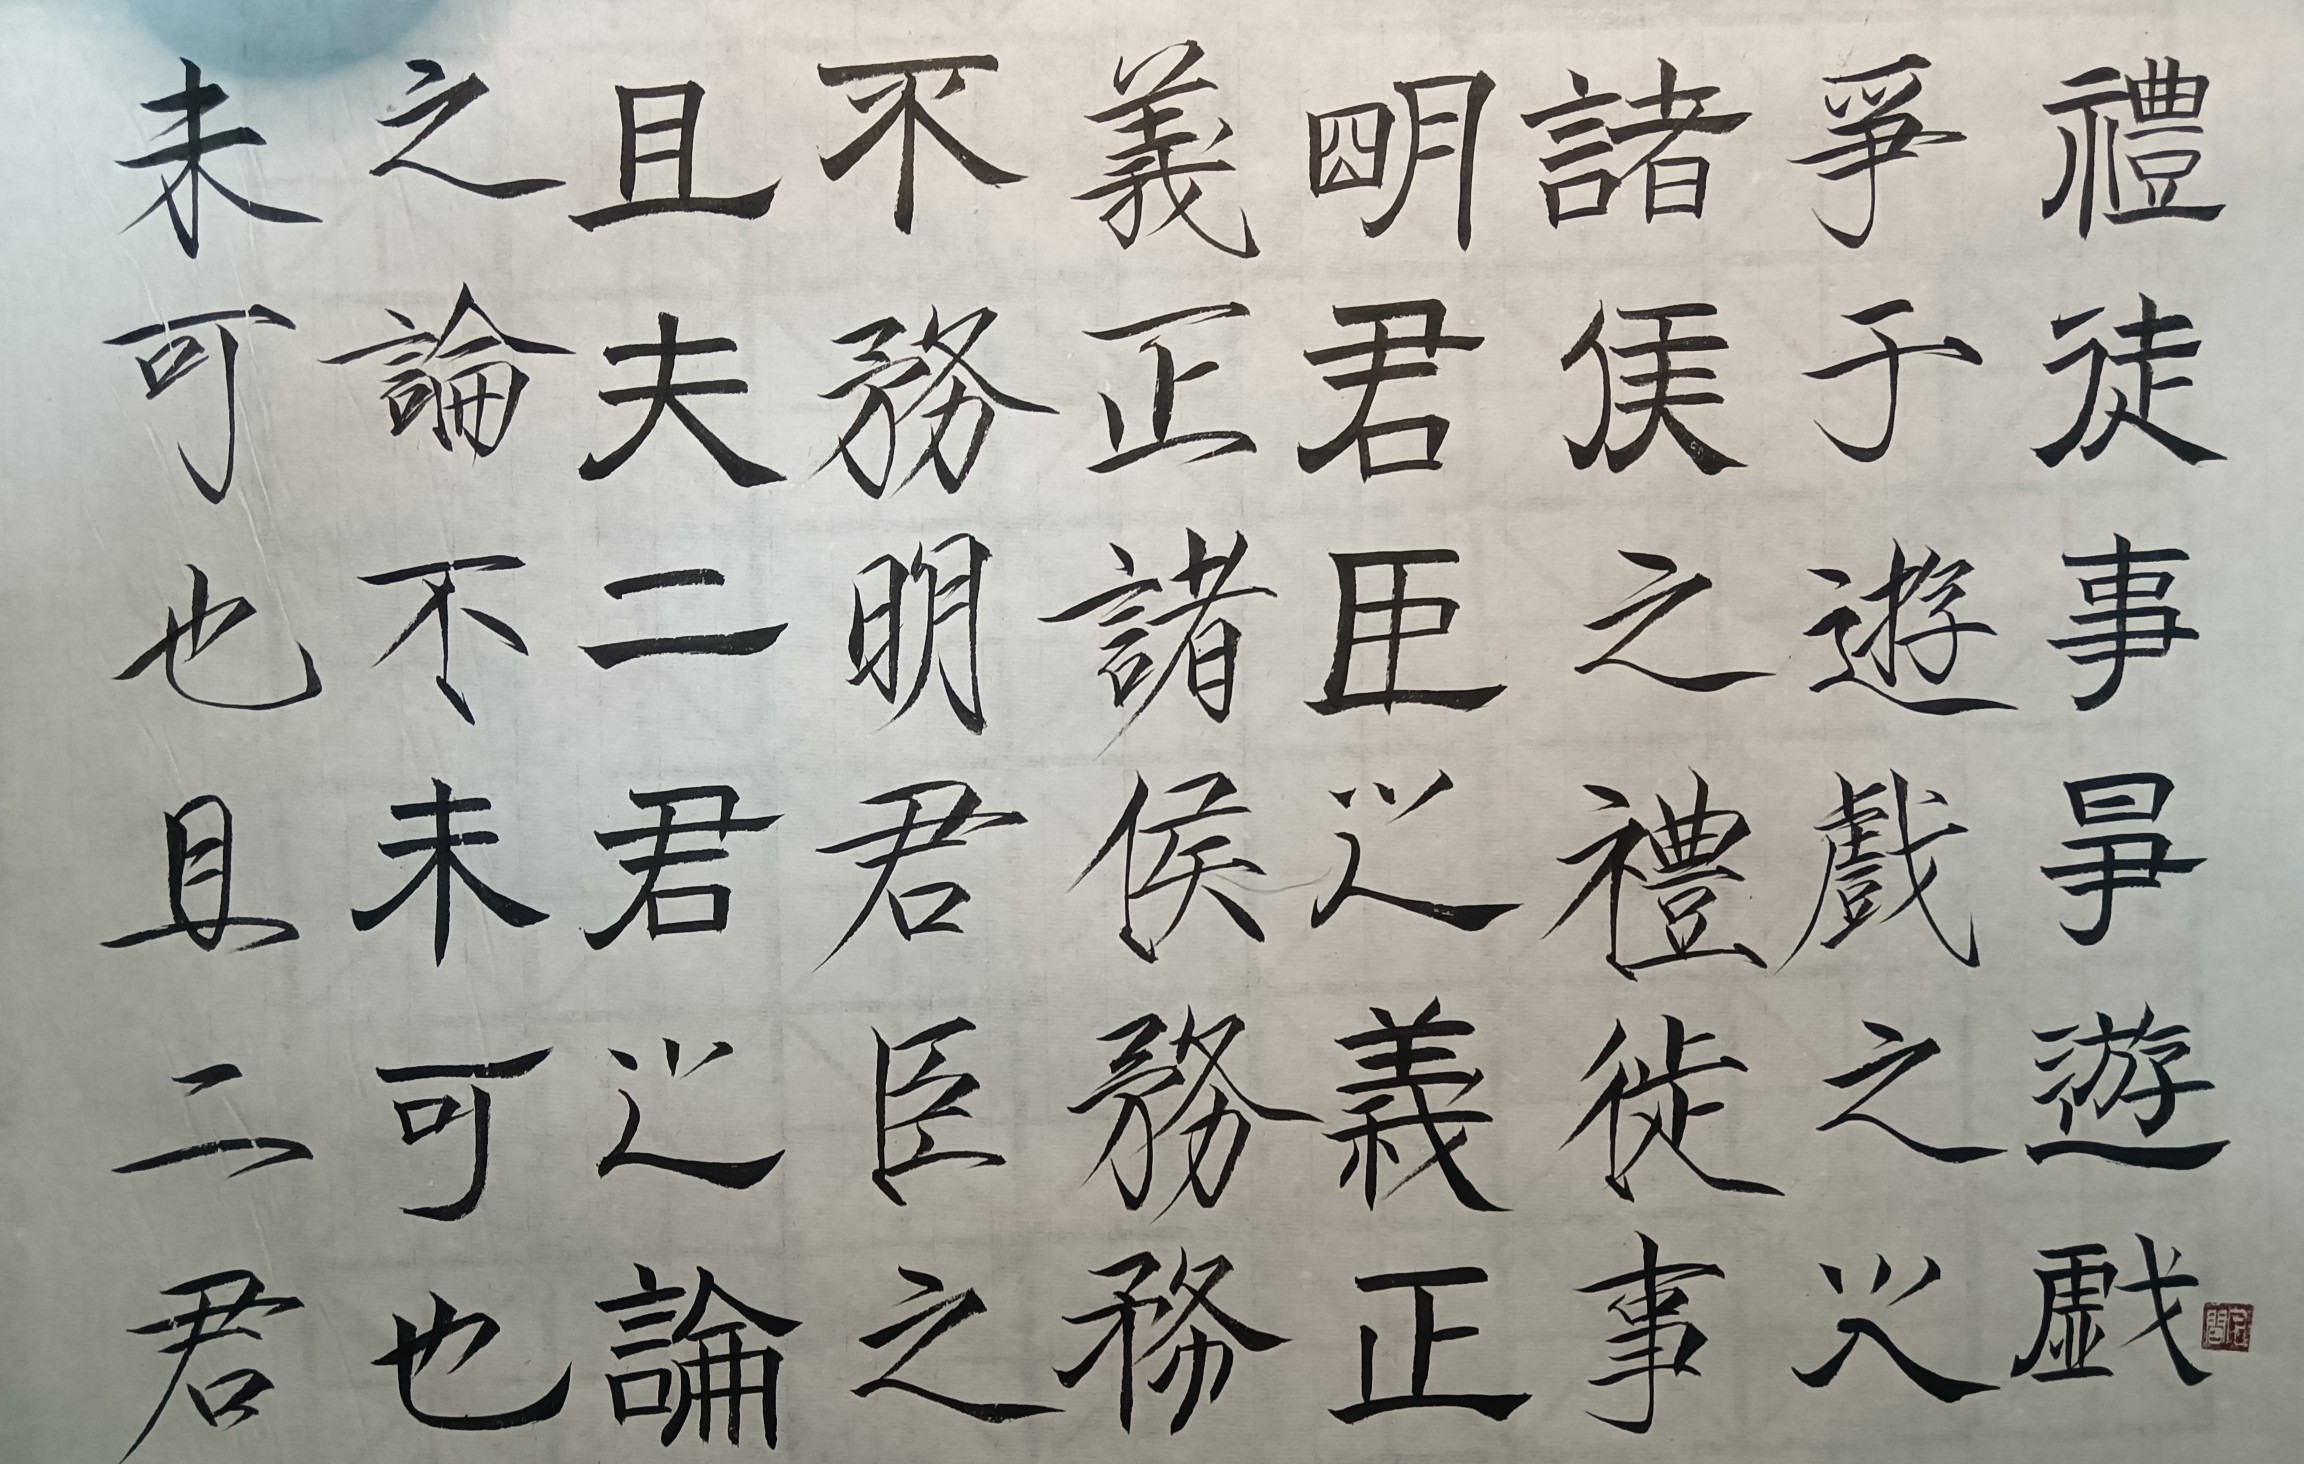 禮徒事爭遊戲
爭于遊戲之之
諸侯之禮徙事
明君臣之義正
義正諸侯務務
不務明君臣之
且夫二君之論
之論不未可也
未可也且二君